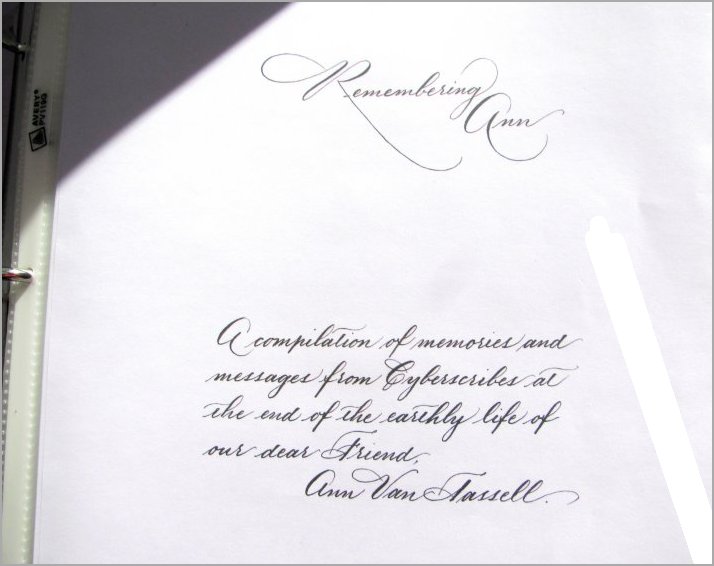 AVERY®
PV119G
Remembering
Ann
A compilation of memories and
messages from Cyberscribes at
the end of the earthly life of
our dear Friend,
Ann Van Tassell.